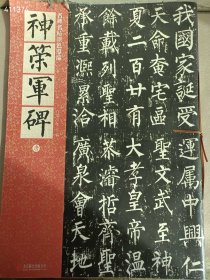 我國家誕受
天命奄宅區
夏二百廿有
餘載列聖相
承重熙累洽
運属中興仁
聖文武至神
大孝皇帝温
恭濬哲齊聖
廣泉會天地
神策軍碑